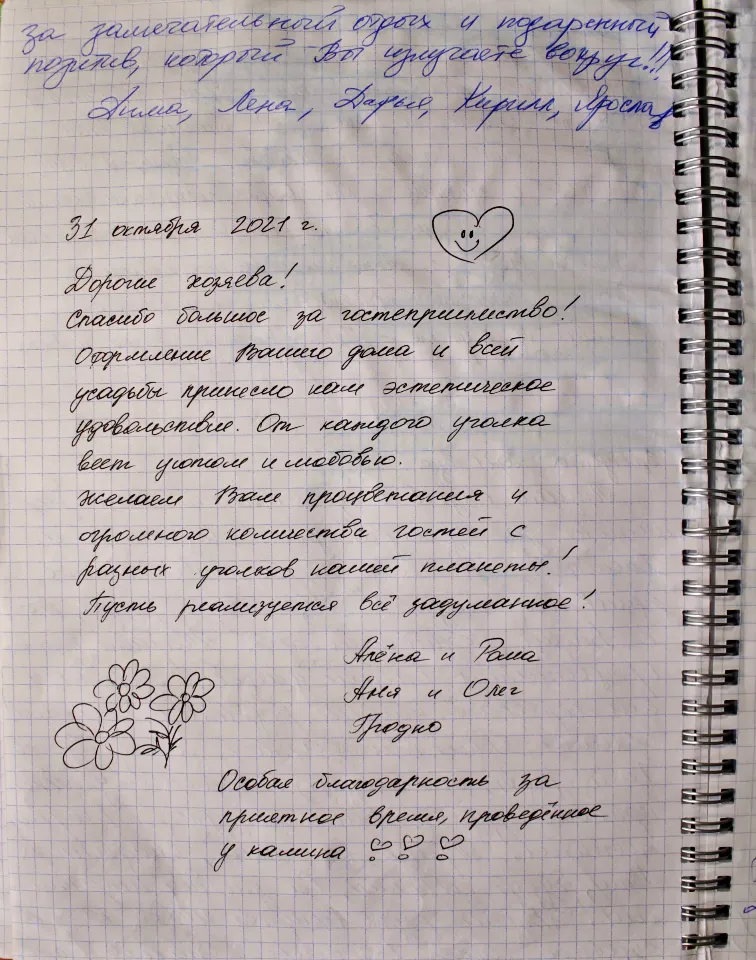 за замечательный отдых и подаренный
позитив, который Вы излучаете вокруг!!!
Дима, Лена, Дарья, Кирилл, Ярослав
31 октября 2021 г.
Дорогие хозяева!
Спасибо большое за гостеприимство!
Оформление Вашего дома и всей
усадьбы принесло нам эстетическое
удовольствие. От каждого уголка
веет уютом и любовью.
Желаем Вам процветания и
огромного количества гостей с
разных уголков нашей планеты!
Пусть реализуется всё задуманное!
Алёна и Рома
Аня и Олег
Гродно
Особая благодарность за
приятное время, проведённое
у камина